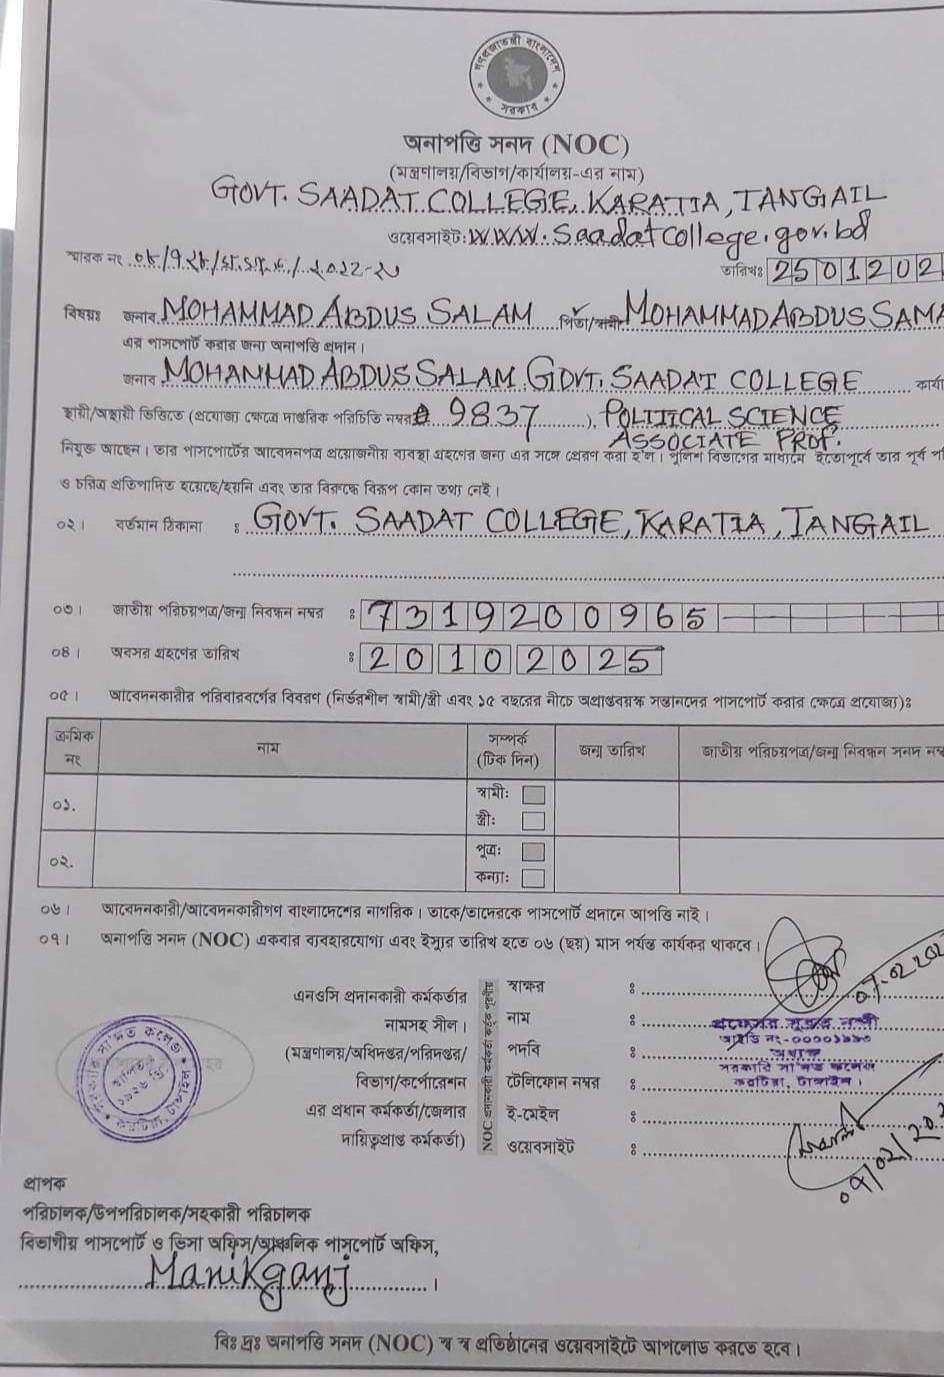 গণপ্রজাতন্ত্রী বাংলাদেশ
সরকার
অনাপত্তি সনদ (NOC)
(মন্ত্রণালয়/বিভাগ/কার্যালয়-এর নাম)
GOVT. SAADAT COLLEGE, KARATIA, TANGAIL
ওয়েবসাইট: WWW.saadatcollege.gov.bd
স্মারক নং
তারিখঃ 2501202
বিষয়ঃ জনাব MOHAMMAD ABDUS SALAM পিতা/স্বামী MOHAMMAD ABDUS SAMA
এর পাসপোর্ট করার জন্য অনাপত্তি প্রদান।
জনাব MOHAMMAD ABDUS SALAM GOVT. SAADAT COLLEGE কার্যা
স্থায়ী/অস্থায়ী ভিত্তিতে (প্রযোজ্য ক্ষেত্রে দাপ্তরিক পরিচিতি নম্বর 9837), POLITICAL SCIENCE
ASSOCIATE PROF.
নিযুক্ত আছেন। তার পাসপোর্টের আবেদনপত্র প্রয়োজনীয় ব্যবস্থা গ্রহণের জন্য এর সঙ্গে প্রেরণ করা হ'ল। পুলিশ বিভাগের মাধ্যমে ইতোপূর্বে তার পূর্ব প
ও চরিত্র প্রতিপাদিত হয়েছে/হয়নি এবং তার বিরুদ্ধে বিরূপ কোন তথ্য নেই।
০২। বর্তমান ঠিকানা ঃ GOVT. SAADAT COLLEGE, KARATIA, TANGAIL
০৩। জাতীয় পরিচয়পত্র/জন্ম নিবন্ধন নম্বর ঃ 7319200965
০৪। অবসর গ্রহণের তারিখ ঃ 20102025
০৫। আবেদনকারীর পরিবারবর্গের বিবরণ (নির্ভরশীল স্বামী/স্ত্রী এবং ১৫ বছরের নীচে অপ্রাপ্তবয়স্ক সন্তানদের পাসপোর্ট করার ক্ষেত্রে প্রযোজ্য)ঃ
ক্রমিক নং নাম সম্পর্ক (টিক দিন) জন্ম তারিখ জাতীয় পরিচয়পত্র/জন্ম নিবন্ধন সনদ নম্ব
০১. স্বামী:
স্ত্রী:
০২. পুত্র:
কন্যা:
০৬। আবেদনকারী/আবেদনকারীগণ বাংলাদেশের নাগরিক। তাকে/তাদেরকে পাসপোর্ট প্রদানে আপত্তি নাই।
০৭। অনাপত্তি সনদ (NOC) একবার ব্যবহারযোগ্য এবং ইস্যুর তারিখ হতে ০৬ (ছয়) মাস পর্যন্ত কার্যকর থাকবে।
এনওসি প্রদানকারী কর্মকর্তার
নামসহ সীল।
(মন্ত্রণালয়/অধিদপ্তর/পরিদপ্তর/
বিভাগ/কর্পোরেশন
এর প্রধান কর্মকর্তা/জেনার
দায়িত্বপ্রাপ্ত কর্মকর্তা)
NOC প্রদানকারী কর্মকর্তা কর্তৃক পূরণীয়
স্বাক্ষর ঃ
07.02.202
নাম ঃ প্রফেসর সুব্রত নন্দী
আইডি নং-০০০০১৯৯০
পদবি ঃ অধ্যক্ষ
সরকারি সা'দত কলেজ
টেলিফোন নম্বর ঃ করটিয়া, টাঙ্গাইল।
ই-মেইল ঃ
ওয়েবসাইট ঃ
09/02/202
সরকারি সা'দত কলেজ
স্থাপিত
১৯২৬
করটিয়া, টাঙ্গাইল
প্রাপক
পরিচালক/উপপরিচালক/সহকারী পরিচালক
বিভাগীয় পাসপোর্ট ও ভিসা অফিস/আঞ্চলিক পাসপোর্ট অফিস,
Manikganj।
বিঃ দ্রঃ অনাপত্তি সনদ (NOC) স্ব স্ব প্রতিষ্ঠানের ওয়েবসাইটে আপলোড করতে হবে।